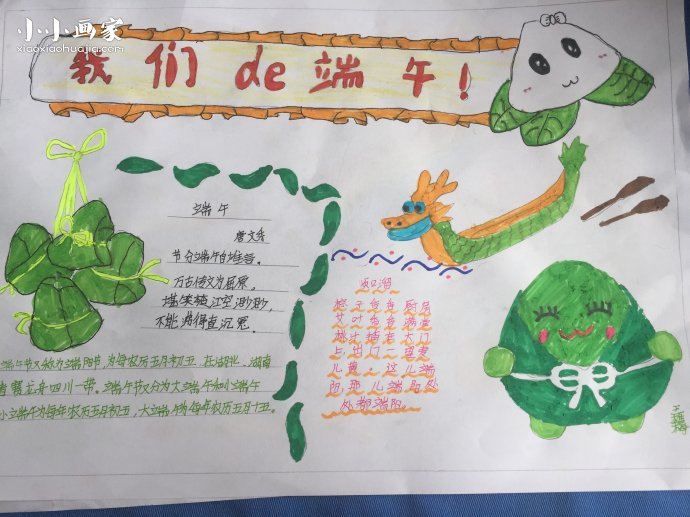 小小画家
xiaoxiaohuajia.com
我们de端午！
端午
唐 文秀
节分端午自谁言。
万古传文为屈原。
堪笑楚江空渺渺，
不能洗得直沉冤。
端午节又称为端阳节，为每农历五月初五
四川一带。端午节又分为大端午和小端午
小端午为每年农历五月初五，大端午为每年农历五月十五。
粽子香香厨房
艾叶香香满堂
桃汁插在大门
上出门一望麦
儿黄这儿端
阳那儿端阳处
处都端阳。